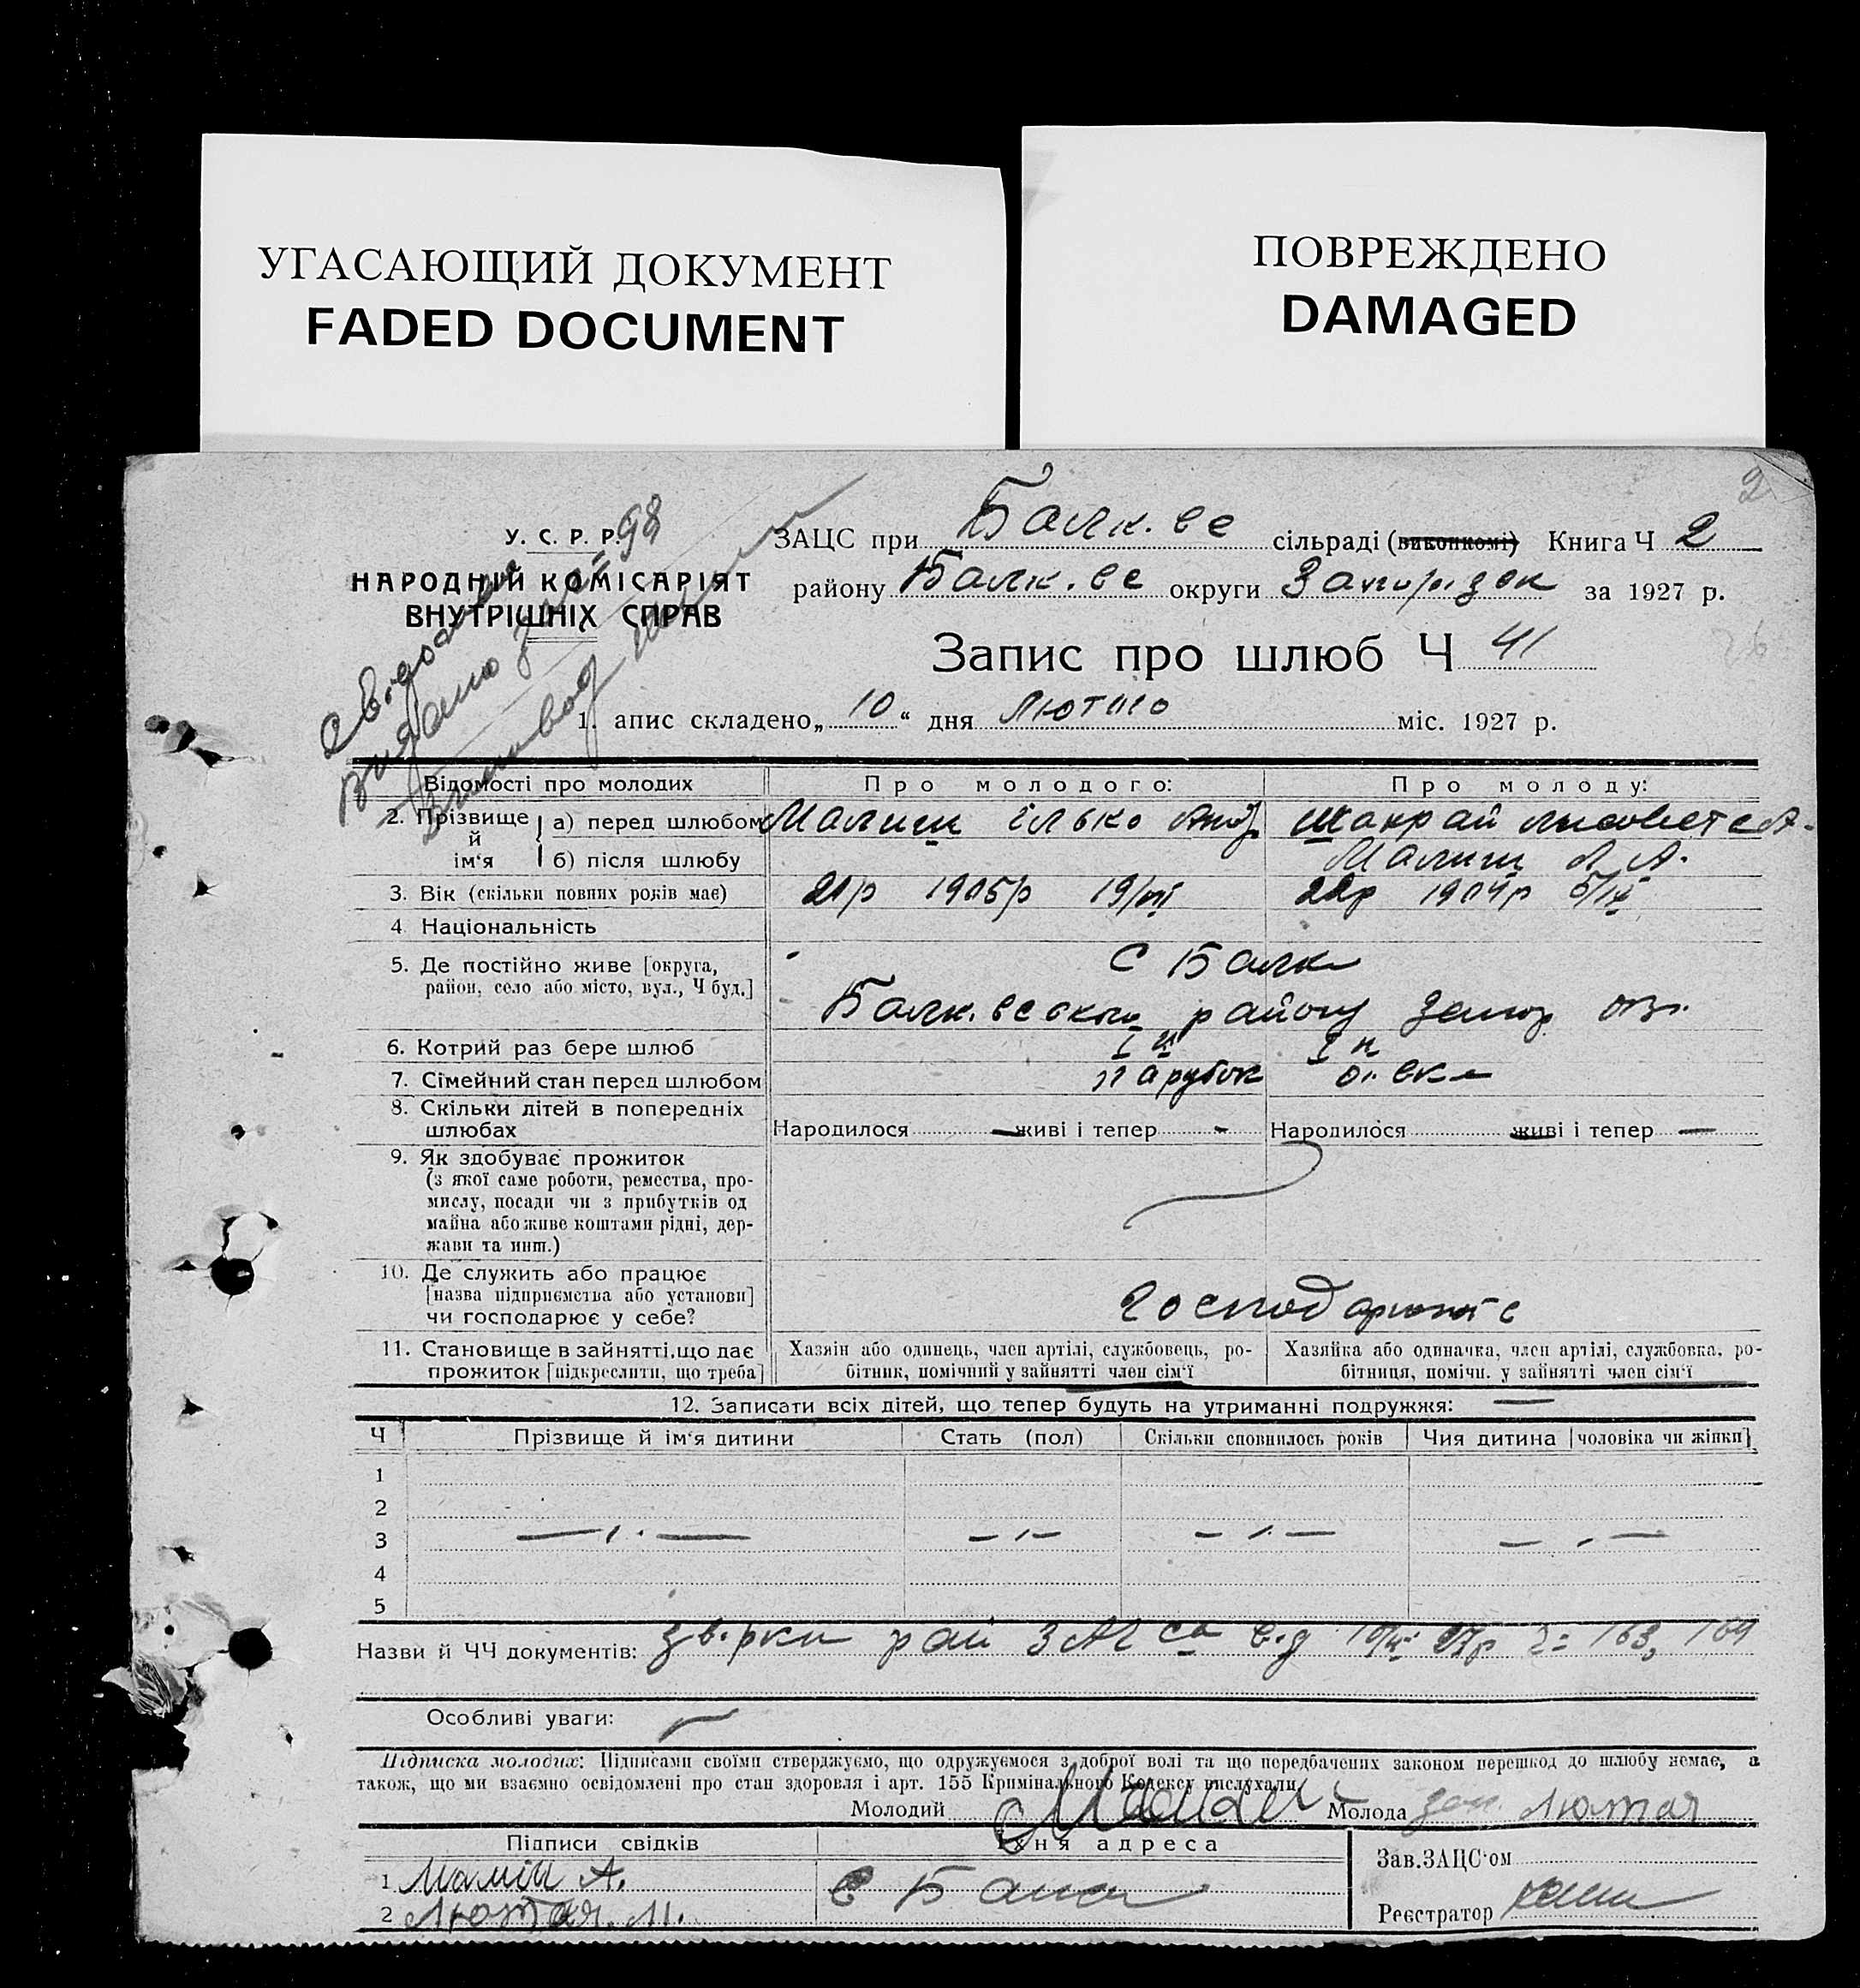 УГАСАЮЩИЙ ДОКУМЕНТ
FADED DOCUMENT
ПОВРЕЖДЕНО
DAMAGED
2
У. С. Р. Р.
НАРОДНІЙ КОМІСАРІЯТ
ВНУТРІШНІХ СПРАВ
98
видано
ЗАЦС при Балк. ве сільраді (виконкомі) Книга Ч 2
району Балк. ве округи Запорізьк за 1927 р.
Запис про шлюб Ч 41
26
1. апис складено „ 10 “ дня Лютого міс. 1927 р.
Відомості про молодих
Про молодого:
Про молоду:
2. Прізвище й ім‘я
а) перед шлюбом Малиш Ілько Анд. Шакрай А.
б) після шлюбу Малиш Л А.
3. Вік (скільки повних років має) 21р 1905р 19/VII 22р 1904р 5/IX
4. Національність
5. Де постійно живе [округа, С Балки
район, село або місто, вул., Ч буд.] Балк. району Запор
6. Котрий раз бере шлюб I й I й
7. Сімейний стан перед шлюбом парубок дівка
8. Скільки дітей в попередніх
шлюбах Народилося — живі і тепер - Народилося живі і тепер —
9. Як здобуває прожиток
(з якої саме роботи, ремества, про-
мислу, посади чи з прибутків од
майна або живе коштами рідні, дер-
жави та инш.)
10. Де служить або працює
[назва підприємства або установи]
чи господарює у себе?
11. Становище в зайнятті, що дає
прожиток [підкреслити, що треба]
Хазяїн або одинець, член артілі, службовець, ро-
бітник, помічний у зайнятті член сім‘ї
Хазяйка або одиначка, член артілі, службовка, ро-
бітниця, помічн. у зайнятті член сім‘ї
12. Записати всіх дітей, що тепер будуть на утриманні подружжя: —
Ч Прізвище й ім‘я дитини Стать (пол) Скільки сповнилось років Чия дитина [чоловіка чи жінки]
1
2
3
4
5
Назви й ЧЧ документів: рай ЗАГСа від 163, 164
Особливі уваги: —
Підписка молодих: Підписами своїми стверджуємо, що одружуємося з доброї волі та що передбачених законом перешкод до шлюбу немає, а
також, що ми взаємно освідомлені про стан здоровля і арт. 155 Кримінального Кодексу вислухали.
Молодий Молода Лютая
Підписи свідків
Їхня адреса
1 А.
2 Лютая. М.
с Балки
Зав.ЗАЦС‘ом
Реєстратор